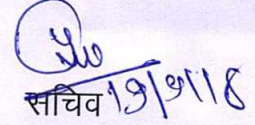 सचिव 19/9/18